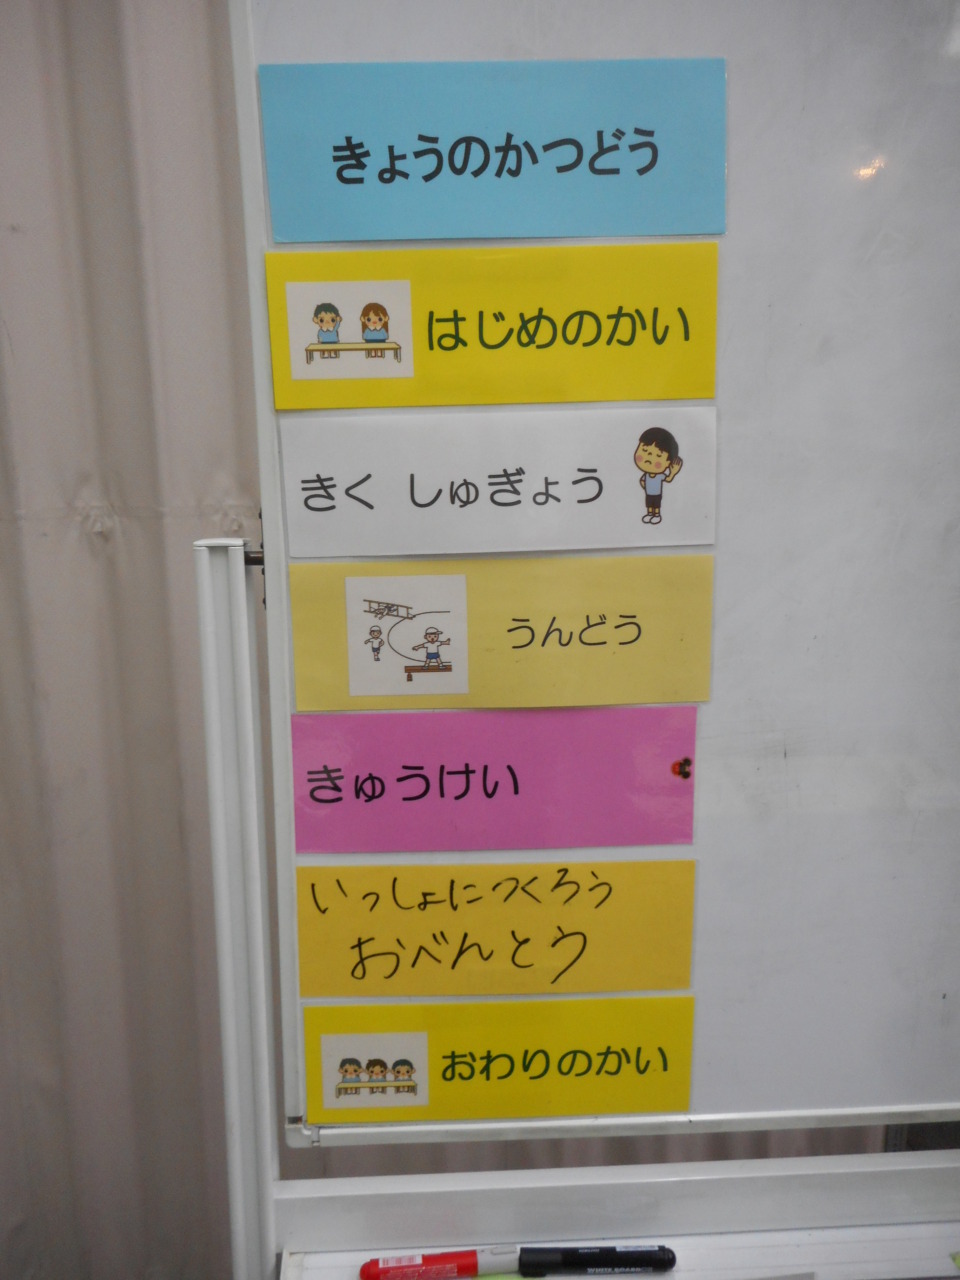 きょうのかつどう
はじめのかい
きく しゅぎょう
うんどう
きゅうけい
いっしょにつくろう
おべんとう
おわりのかい